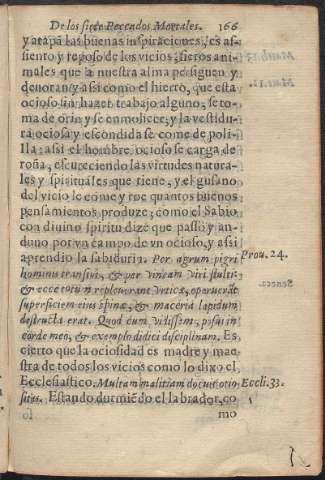 De los siete Peccados Mortales. 166
y atapa las buenas inspiraciones, es as-
siento y reposo de los vicios, fieros ani-
males que la nuestra alma persiguen y
devoran, y assi como el hierro, que esta
ocioso sin hazer trabajo alguno, se to-
ma de orin y se enmolece, y la vestidu-
ra ociosa y escondida se come de poli-
lla: assi el hombre ocioso se carga de
roña, escureciendo las virtudes natura-
les y spirituales que tiene, y el gusano
del vicio le come y roe quantos buenos
pensamientos produze; como el Sabio
con divino spiritu dize que passo y an-
duuo por vn campo de vn ocioso, y assi
aprendio la sabiduria. Per agrum pigri Prou. 24.
hominis transivi, & per vineam viri stulti:
& ecce totum repleuerant vrticæ, operuerãt
superficiem eius spinæ, & maceria lapidum
destructa erat. Quod cum vidissem, posui in
corde meo, & exemplo didici disciplinam. Es
cierto que la ociosidad es madre y mae-
stra de todos los vicios como lo dixo el
Ecclesiastico. Multam malitiam docuit otio Eccli. 33.
sitas. Estando durmiẽdo el labrador, co
mo